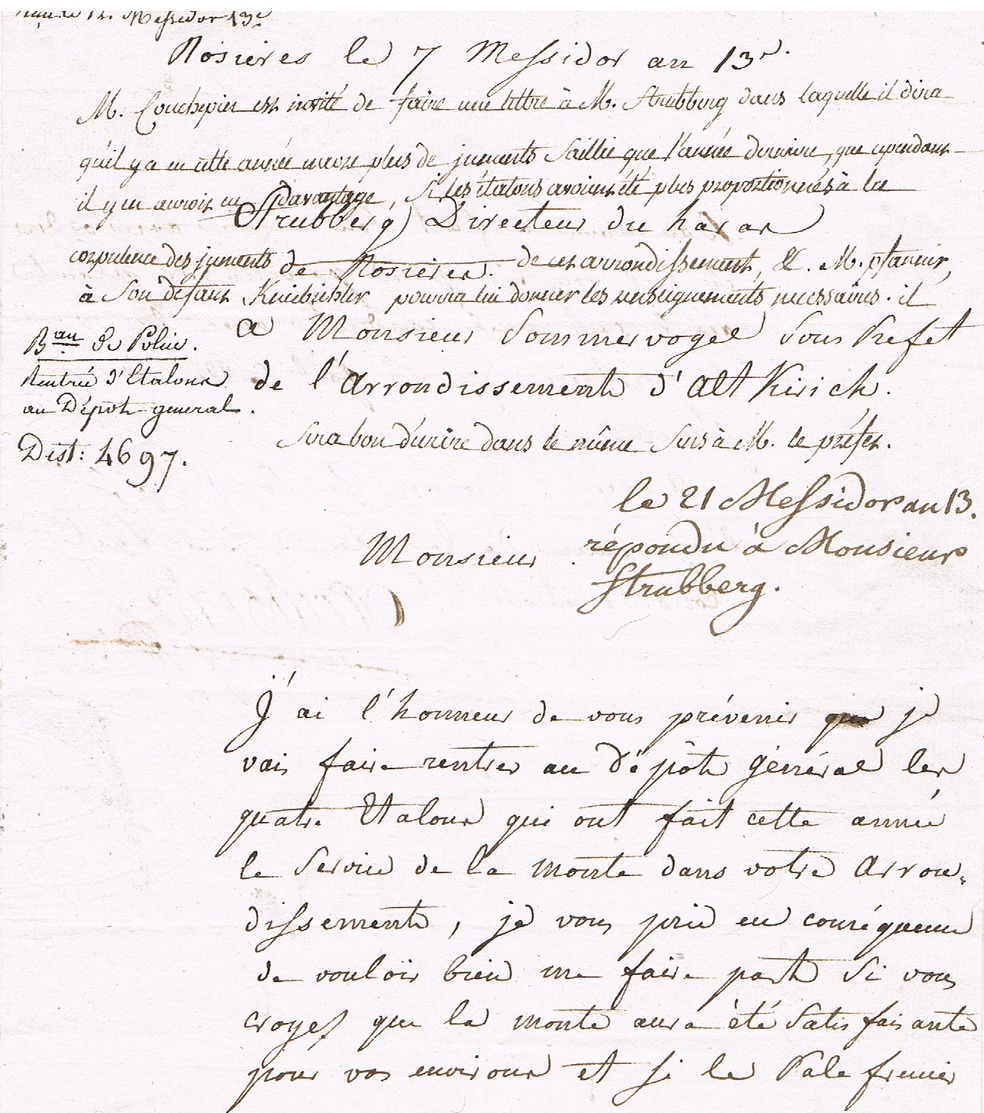 12. Messidor 13e
Rosieres le 7 Messidor an 13e.
M. Couchepin est invité de faire une lettre à M. Strubberg dans laquelle il dira
qu'il y a eu cette année encore plus de juments saillie que l'année derniere, que cependant
il y en auroit eu davantage, si les étalons avoient été plus proportionnés à la
Strubberg Directeur du haras
corpulence des juments de cet arrondissement, &. M.
de Rosieres.
à son défaut pourra lui donner les renseignements necessaires. il
a Monsieur Sommervogel Sous Prefet
Bau de Police.
Rentrée d'Etalons
au Dépot general.
Dist: 4697.
de l'arrondissement d'altKirich.
sera bon d'écrire dans le même sens à M. le préfet.
le 21 Messidor an 13.
répondu à Monsieur
Strubberg.
Monsieur
J'ai l'honneur de vous prévenir que je
vais faire rentrer au Dépôt général les
quatre Etalons qui ont fait cette année
le Service de la monte dans votre Arron-
dissement, je vous prie en conséquence
de vouloir bien me faire part Si vous
croyez que la monte aura été Satisfaisante
pour vos environs et si le Palefrenier